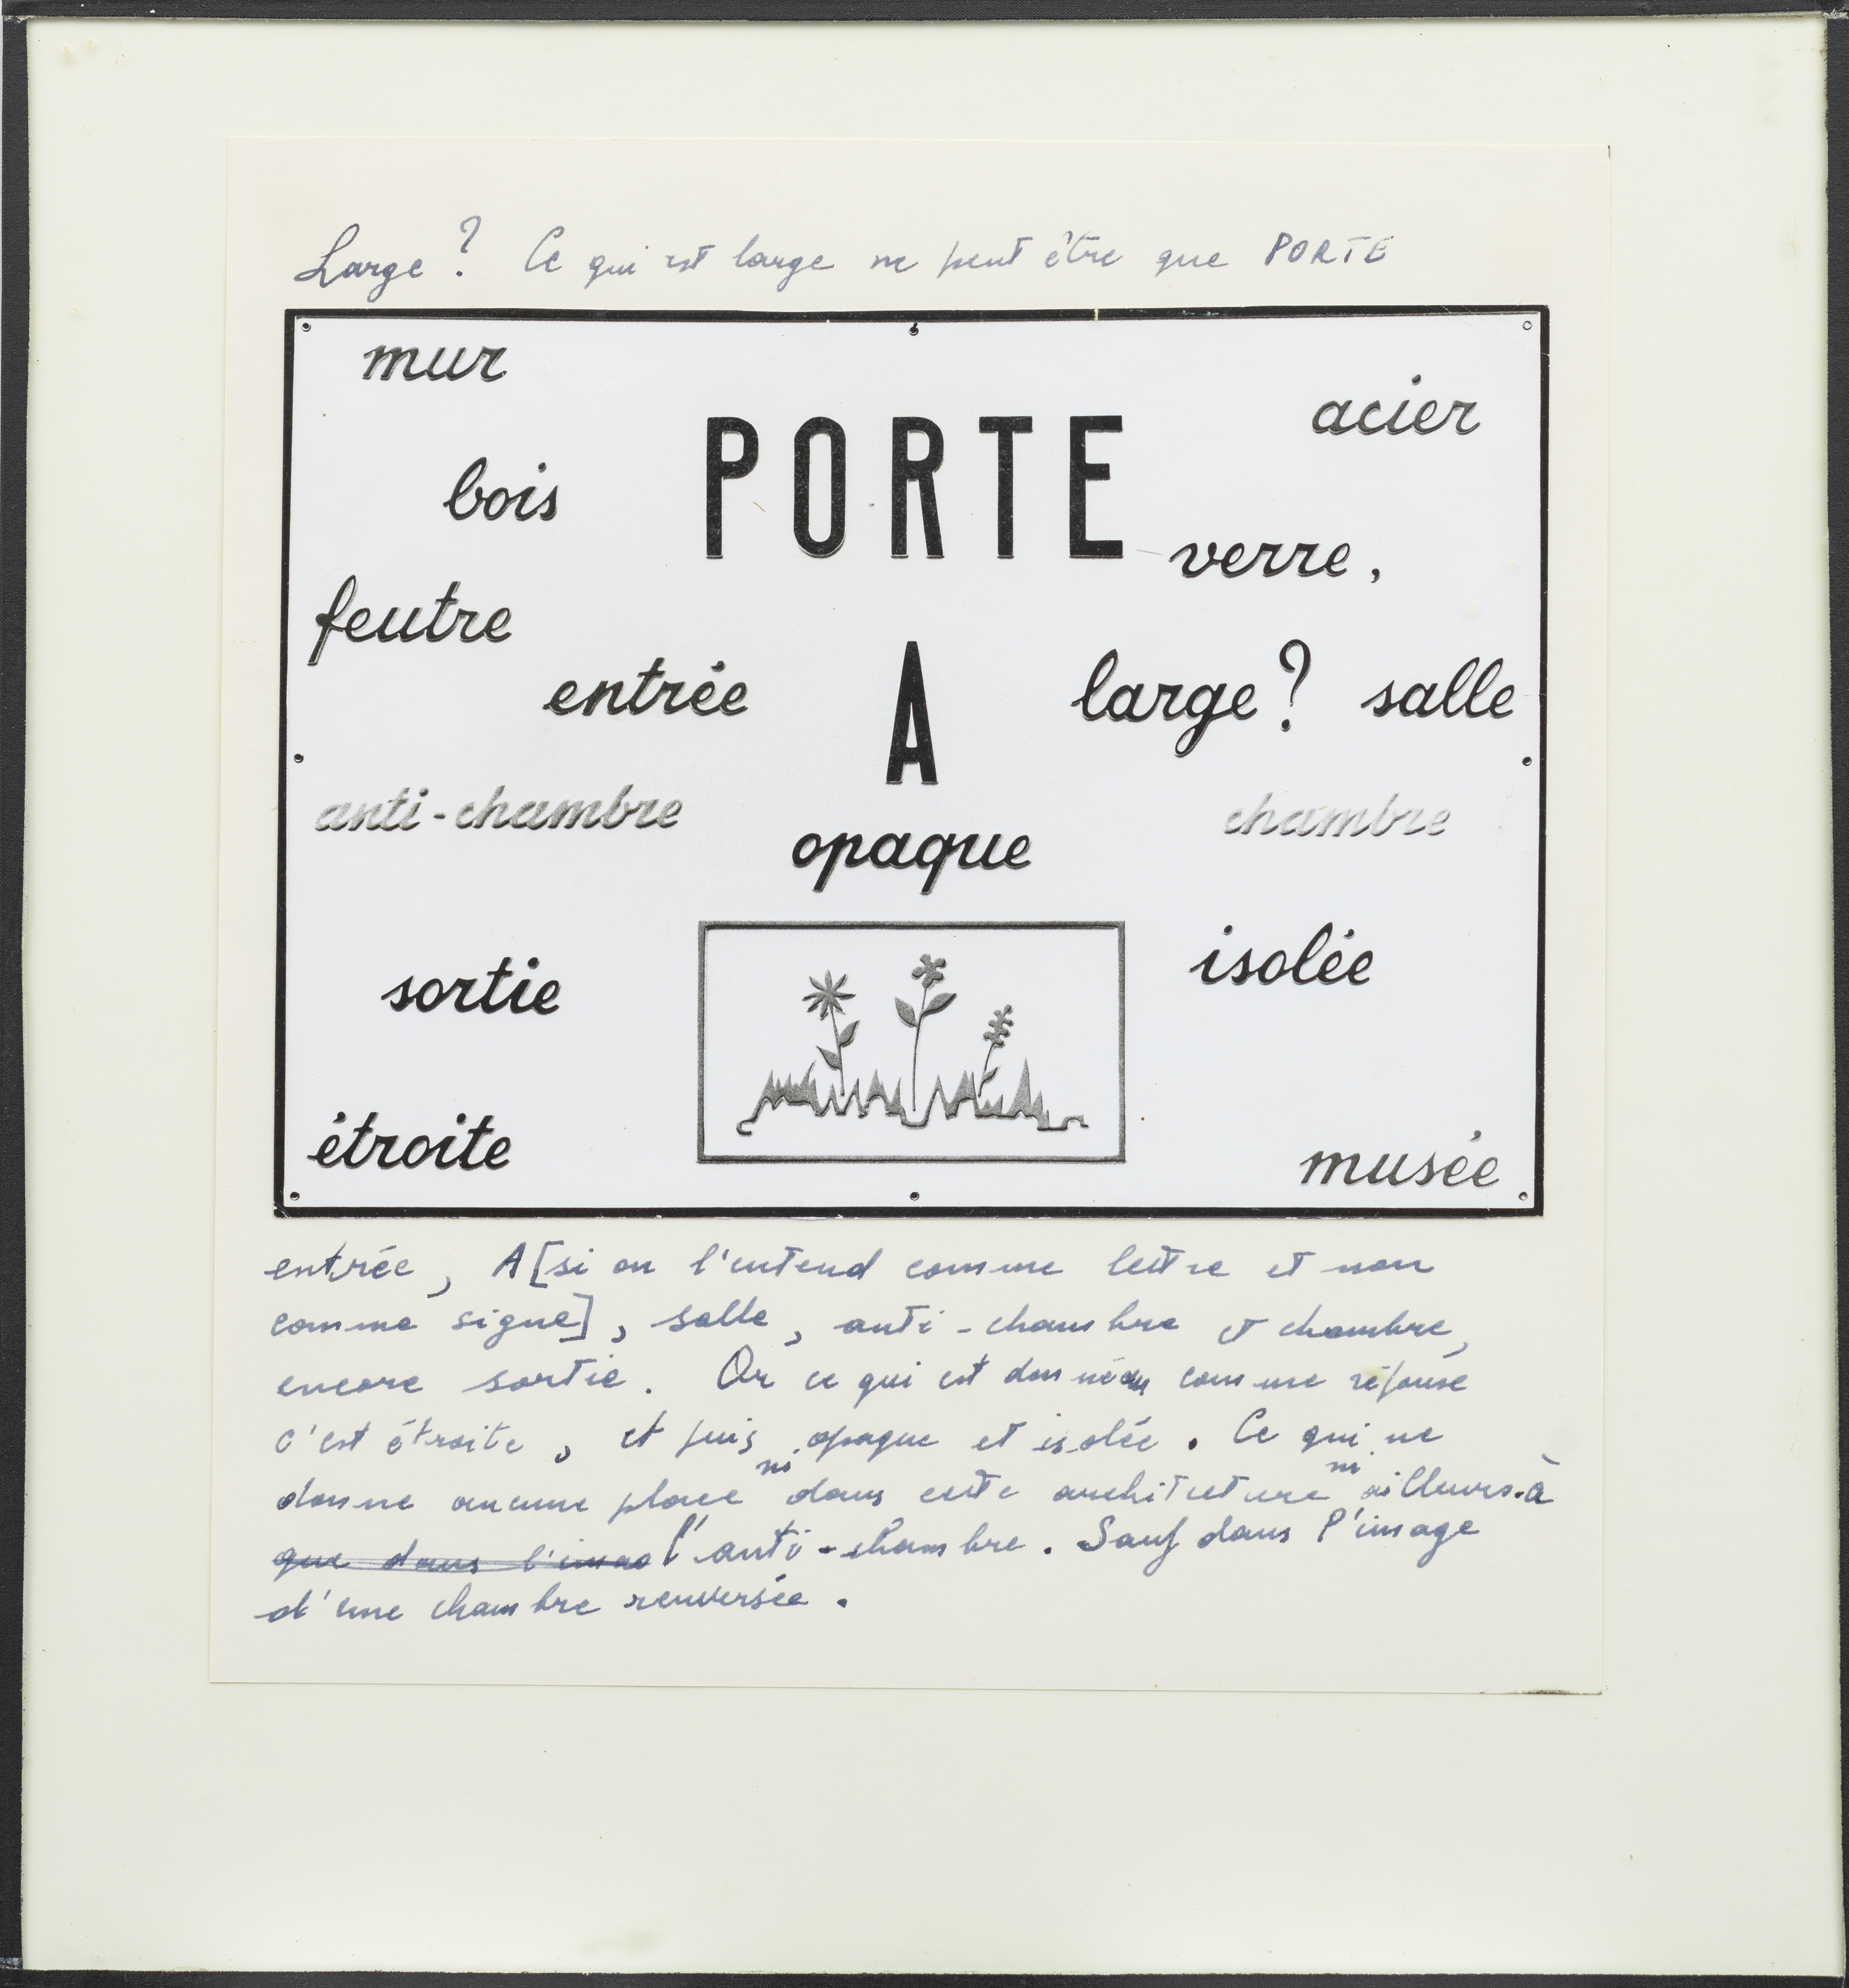 Large ? Ce qui est large ne peut être que PORTE
mur
acier
PORTE
bois
verre,
feutre
entrée
A
large ? salle
anti-chambre
chambre
opaque
isolée
sortie
étroite
musée
entrée, A [si on l'entend comme lettre et non
comme signe], salle, anti-chambre et chambre,
encore sortie. Or ce qui est comme réponse
c'est étroite, et puis opaque et isolée. Ce qui ne
donne aucune place ni dans cette architecture ni ailleurs à
que dans l'imae l'anti-chambre. Sauf dans l'image
d'une chambre renversée.